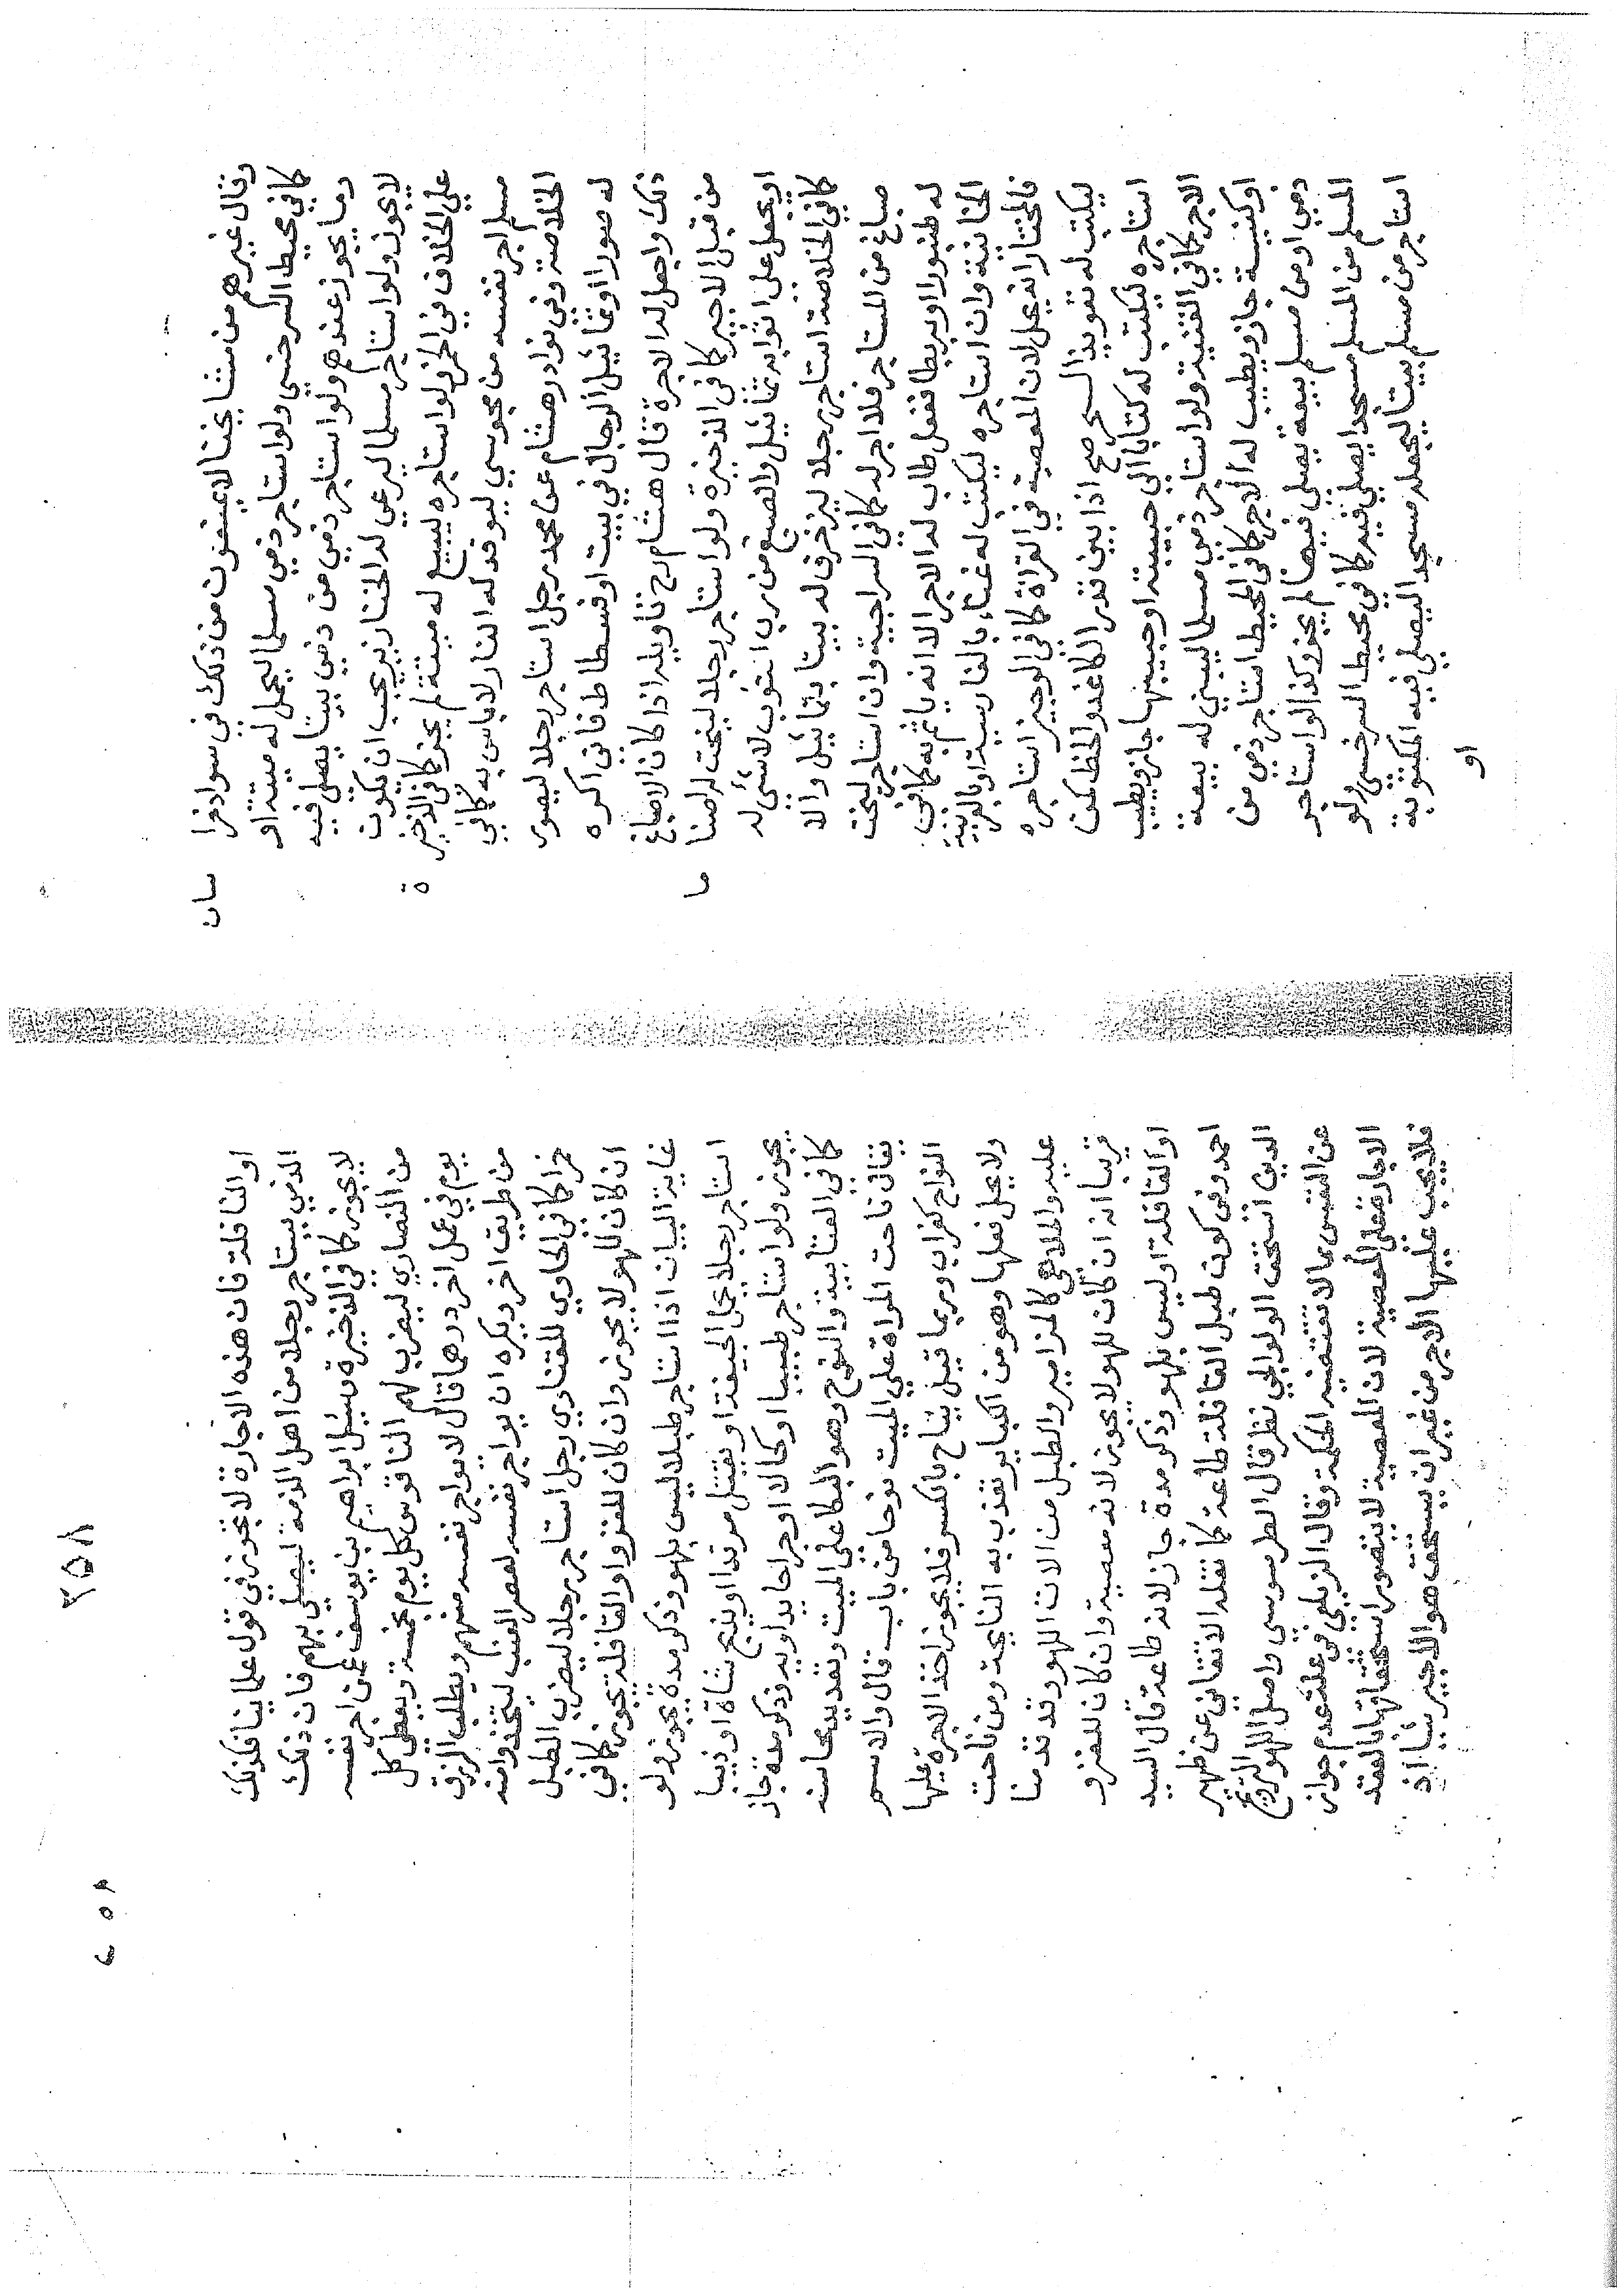 وقال غيرهم من مشايخنا لا يمنعون من ذلك في سواد خرا
سان
كما في محيط السرخسي ولو استاجر ذمي مسلما ليحمل له ميتة او
دما يجوز عندهم ولو استاجر ذمي من ذمي بيتا يصلي فيه
لا يجوز ولو استاجر مسلما ليرعي له الخنازير يجب ان يكون
علي الخلاف في الخمر ولو استاجره ليبيع له ميتة لم يجز كما في الذخير
ة
مسلم اجر نفسه من مجوسي ليوقد له النار لا باس به كما في
الخلاصة وفي نوادر هشام عن محمد رجل استاجر رجلا ليصور
له صورا او تماثيل الرجال في بيت او فسطاط فاني اكره
ذلك واجعل له الاجرة قال هشام رح تاويله اذا كان الاصباغ
من قبل الاجير كما في الذخيرة ولو استاجر رجلا لينحت له اصنا
ما
او يجعل علي اثوابه تماثيل والصبغ من رب الثوب لا شئ له
كما في الخلاصة استاجر رجلا ليزخرف له بيتا بتماثيل والا
صباغ من المستاجر فلا اجر له كما في السراجية وان استاجر لينحت
له طنبورا او بربطا ففعل طاب له الاجر الا انه ياثم به كما في
الخانية وان استاجره ليكتب له غناء بالفارسية او بالعربية
فالمختار انه يحل لان المعصية في القراة كما في الوجيز استاجره
ليكتب له تعويذ السحر صح اذا بين قدر الكاغذ والخط كمن
استاجره ليكتب له كتابا الي حبيبته او حبيبها جاز ويطيب
الاجر كما في القنية ولو استاجر ذمي مسلما ليبني له بيعة
او كنيسة جاز ويطيب له الاجر كما في المحيط استاجر ذمي من
ذمي او من مسلم بيعة يصلي فيها لم يجز وكذا لو استاجر
المسلم من المسلم مسجدا يصلي فيه كما في محيط السرخسي ولو
استاجر من مسلم بيتا ليجعله مسجدا ليصلي فيه المكتوبة
او
٢٥٨
او النافلة فان هذه الاجارة لا تجوز في قول علماينا فكذلك
الذمي يستاجر رجلا من اهل الذمة ليصلي بهم فان ذلك
لا يجوز كما في الذخيرة سئل ابراهيم بن يوسف عمن اجر نفسه
من النصاري ليضرب لهم الناقوس كل يوم بخمسة ويعطي كل
يوم في عمل اخر درهما قال لا يواجر نفسه منهم ويطلب الرزق
من طريق اخر ويكره ان يواجر نفسه لعصر العنب ليتخذوا منه
خمرا كما في الحاوي للفتاوي رجل استاجر رجلا ليضرب الطبل
ان كان للهو لا يجوز وان كان للغزو او القافلة يجوز كما في
غاية البيان اذا استاجر طبلا ليس بلهو وذكر مدة يجوز ولو
استاجر رجلا بحمل الجيفة او بقتل مرتد او بذبح شاة او ذيبا
يجوز ولو استاجر طبيبا او كحالا او جراحا يداويه وذكر مدة جاز
كما في العتابية والنوح وهو البكا علي الميت وتعديد محاسنه
يقال ناحت المراة علي الميت نوحا من باب قال والاسم
النواح كغراب وربما قيل نياح بالكسر فلا يجوز اخذ الاجرة عليها
ولا يحل فعلها وهو من الكباير تعذب به النايحة ومن ناحت
عليه والملاهي كالمزامير والطبل من الات اللهو وقد قدمنا
قريبا انه ان كان للهو لا يجوز لانه معصية وان كان للغزو
او القافلة او ليس بلهو وذكر مدة جاز لانه طاعة قال السيد
احمد وفي كون طبل القافلة طاعة كما نقله الاتقاني عن ظهير
الدين اسحق الولوالجي نظر قال الطرسوسي واصل اللهو الترويح
عن النفس بما لا تقتضيه الحكمة وقال الزيلعي في علة عدم جواز
الاجارة علي المعصية لان المعصية لا يتصور استحقاقها بالعقد
فلا يجب عليها الاجر من غير ان يستحق هو الاجير شيا اذ